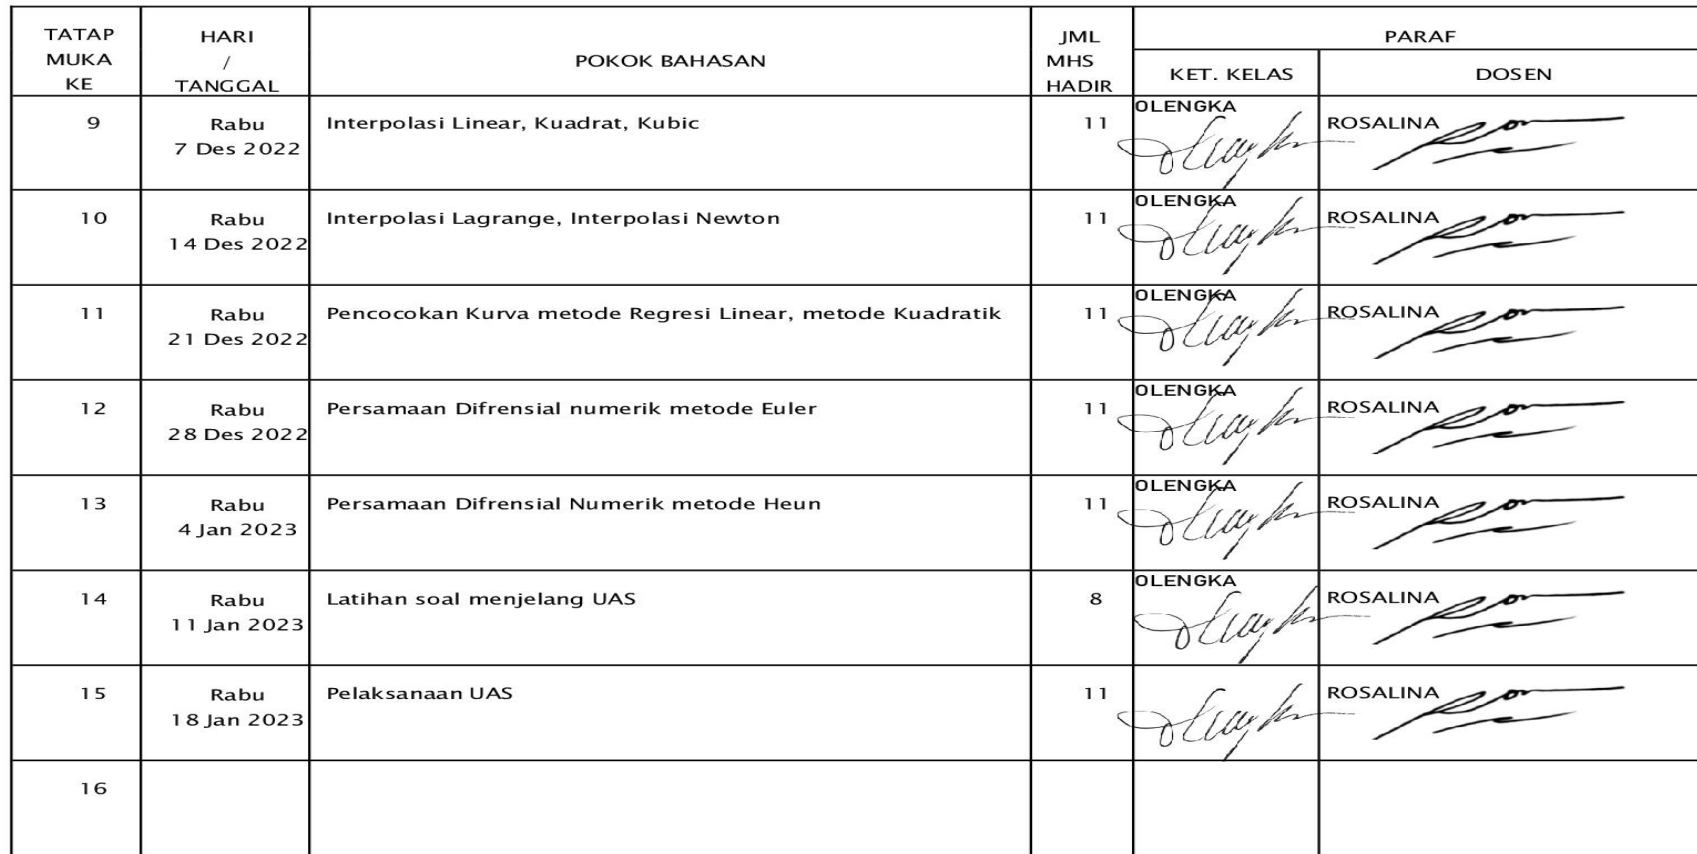 TATAP MUKA KE
HARI / TANGGAL
POKOK BAHASAN
JML MHS HADIR
PARAF
KET. KELAS
DOSEN
9
Rabu
7 Des 2022
Interpolasi Linear, Kuadrat, Kubic
11
OLENGKA
ROSALINA
10
Rabu
14 Des 2022
Interpolasi Lagrange, Interpolasi Newton
11
OLENGKA
ROSALINA
11
Rabu
21 Des 2022
Pencocokan Kurva metode Regresi Linear, metode Kuadratik
11
OLENGKA
ROSALINA
12
Rabu
28 Des 2022
Persamaan Difrensial numerik metode Euler
11
OLENGKA
ROSALINA
13
Rabu
4 Jan 2023
Persamaan Difrensial Numerik metode Heun
11
OLENGKA
ROSALINA
14
Rabu
11 Jan 2023
Latihan soal menjelang UAS
8
OLENGKA
ROSALINA
15
Rabu
18 Jan 2023
Pelaksanaan UAS
11
ROSALINA
16